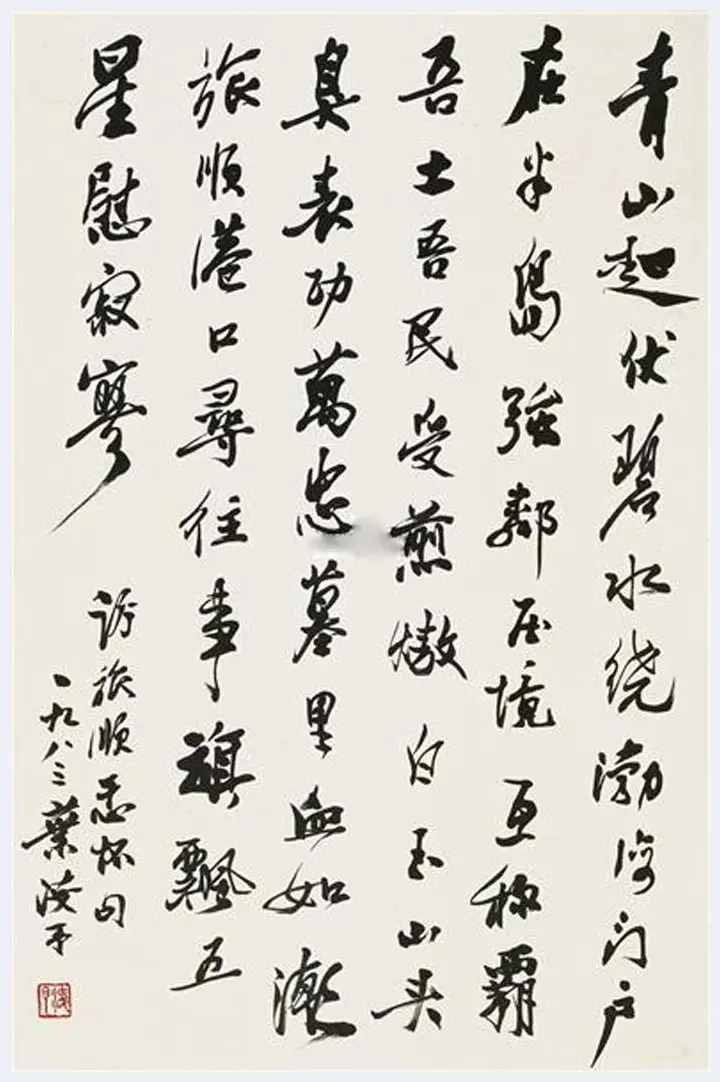 青山起伏碧水绕渤海门户
在半島強鄰压境互称霸
吾土吾民受煎熬白玉山头
臭表功萬忠墓里血如潮
旅順港口尋往事旗飄五
星慰寂寥
訪旅順怀句
一九八三葉浅予